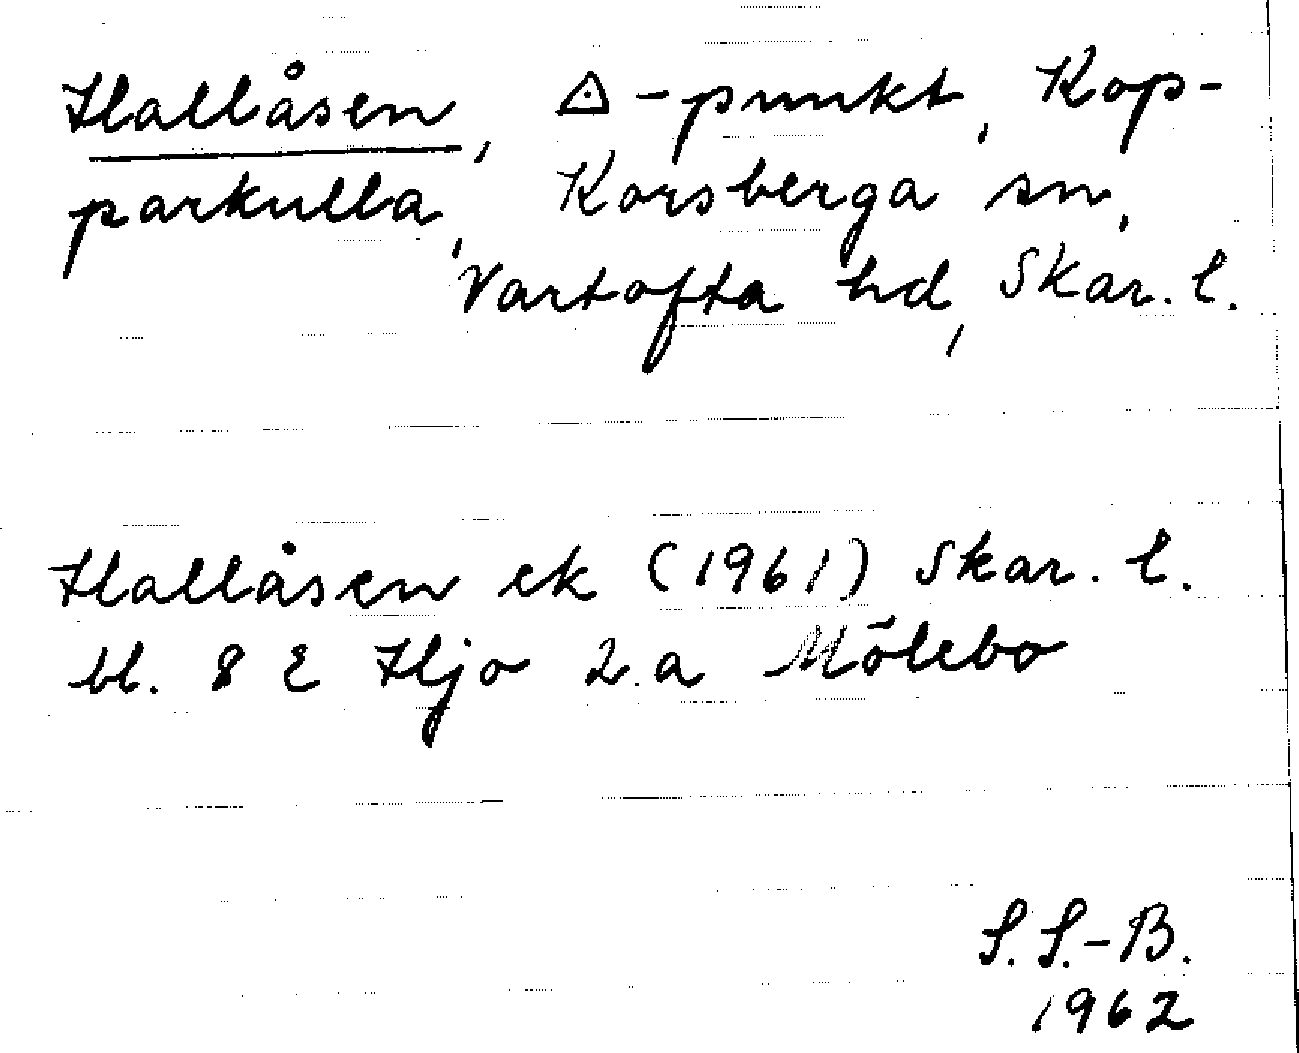 Hallåsen, △-punkt, Kop-
parkulla, Korsberga sn,
Vartofta hd, Skar. l.
Hallåsen ek (1961) Skar. l.
bl. 8 E Hjo 2.a Mölebo
S. S.-B.
1962